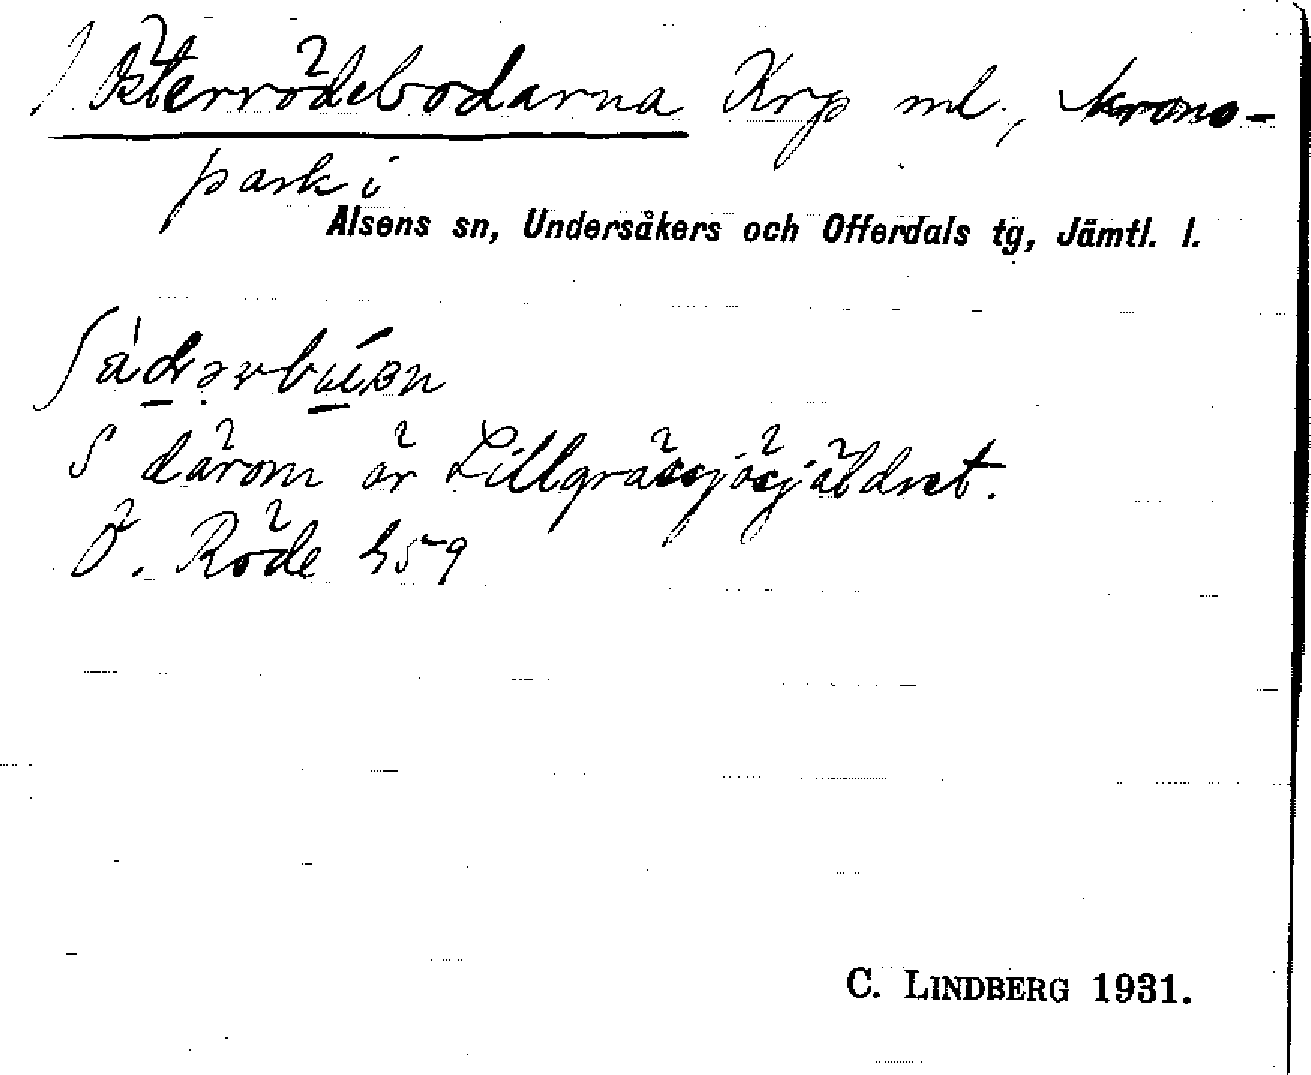 Österrödebodarna Krp ml., krono-
park i
Alsens sn, Undersåkers och Offerdals tg, Jämtl. l.
S därom är Lillgråssjösjäldret.
Ö. Röde h59
C. LINDBERG 1931.